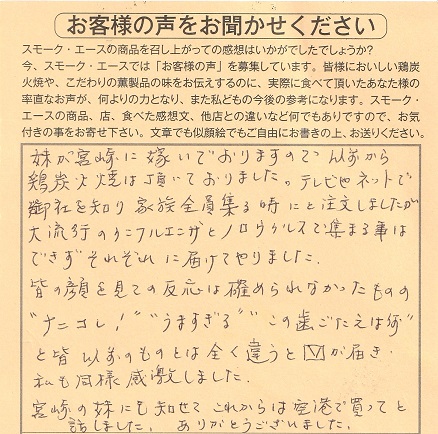 お客様の声をお聞かせください
スモーク・エースの商品を召し上がっての感想はいかがでしたでしょうか?
今、スモーク・エースでは「お客様の声」を募集しています。皆様においしい鶏炭
火焼や、こだわりの薫製品の味をお伝えするのに、実際に食べて頂いたあなた様の
率直なお声が、何よりの力となり、また私どもの今後の参考になります。スモーク・
エースの商品、店、食べた感想文、他店との違いなど何でもありですので、お気
付きの事をお寄せ下さい。文章でも似顔絵でもご自由にお書きの上、お送りください。
妹が宮崎に嫁いでおりますので 以前から
鶏炭火焼は頂いておりました。テレビやネットで
御社を知り 家族全員集る時にと注文しましたが
大流行のインフルエンザとノロウィルスで集まる事は
できずそれぞれに届けてやりました.
皆の顔を見ての反応は確められなかったものの
"ナニコレ!" "うますぎる" "この歯ごたえは何"
と皆 以前のものとは全く違うと が届き.
私も同様感激しました.
宮崎の妹にも知せて これからは空港で買ってと
話しました. ありがとうございました.